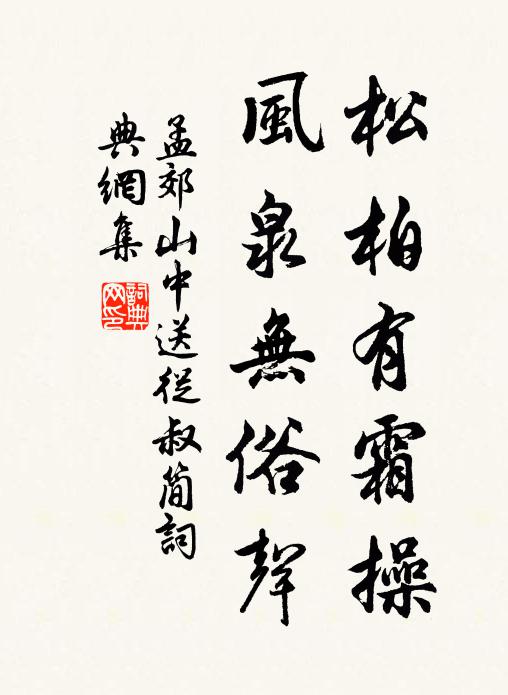 松柏有霜操
風泉無俗聲
孟郊山中送從叔簡詞
典網集
詞典
网印